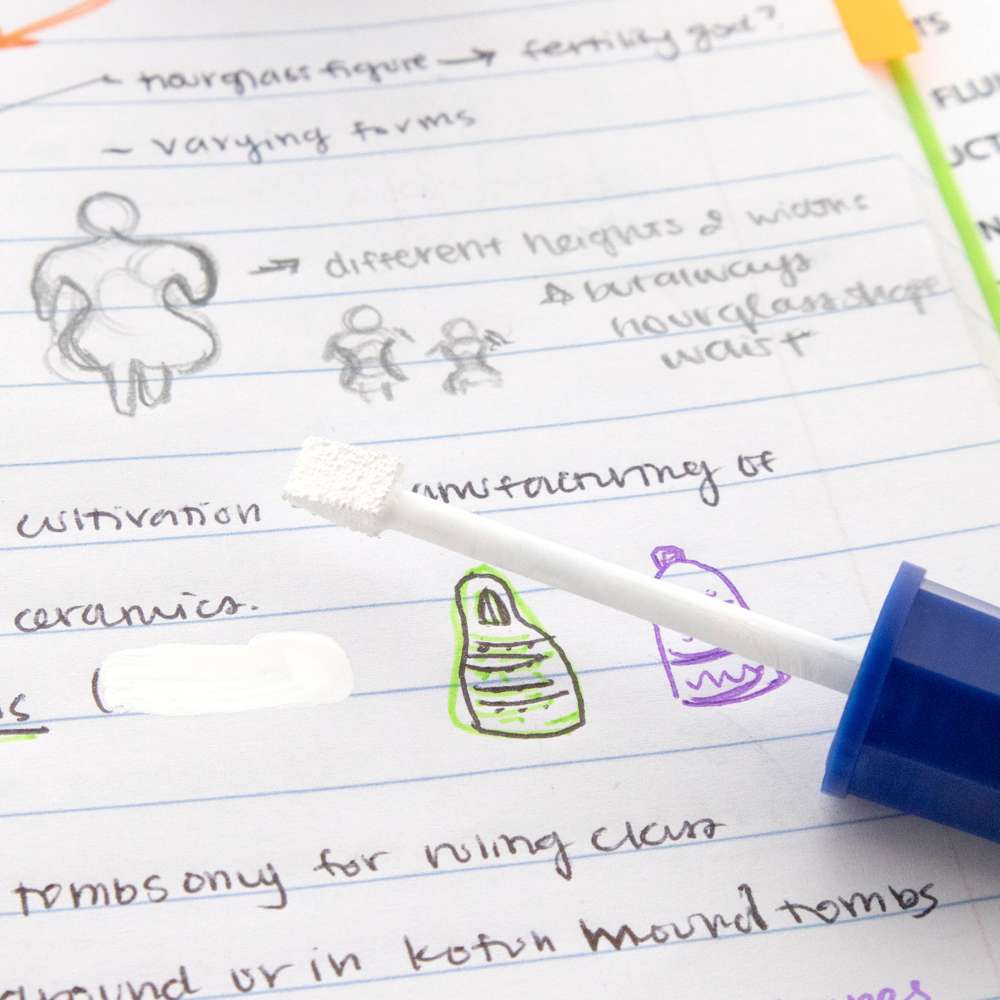 - hourglass figure → fertility god?
- varying forms
→ different heights & widths
☆ but always
hourglass shape
waist
cultivation
manufacturing of
ceramics.
(
tombs only for ruling class
ground or in kofun mound tombs
TS
FLUI
UCT
N